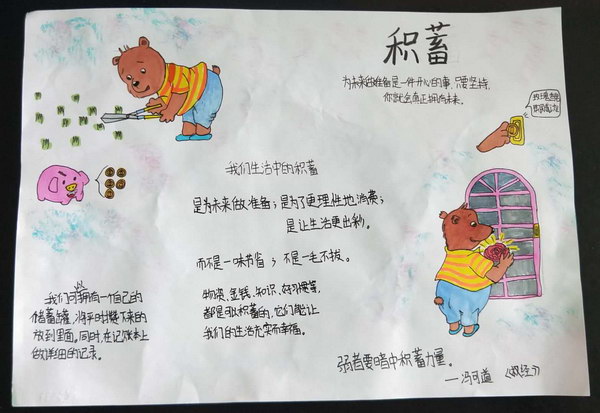 积蓄
为未来做准备是一件开心的事,只要坚持,
你就会真正拥有未来。
我们生活中的积蓄
是为未来做准备;是为了更理性地消费;
是让生活更出彩。
而不是一味节省;不是一毛不拔。
物资、金钱、知识、好习惯等,
都是可以积蓄的,它们能让
我们的生活充实而幸福。
我们可以拥有一个自己的
储蓄罐,将平时攒下来的
放到里面。同时,在记账本上
做详细的记录。
弱者要暗中积蓄力量。
——冯可道